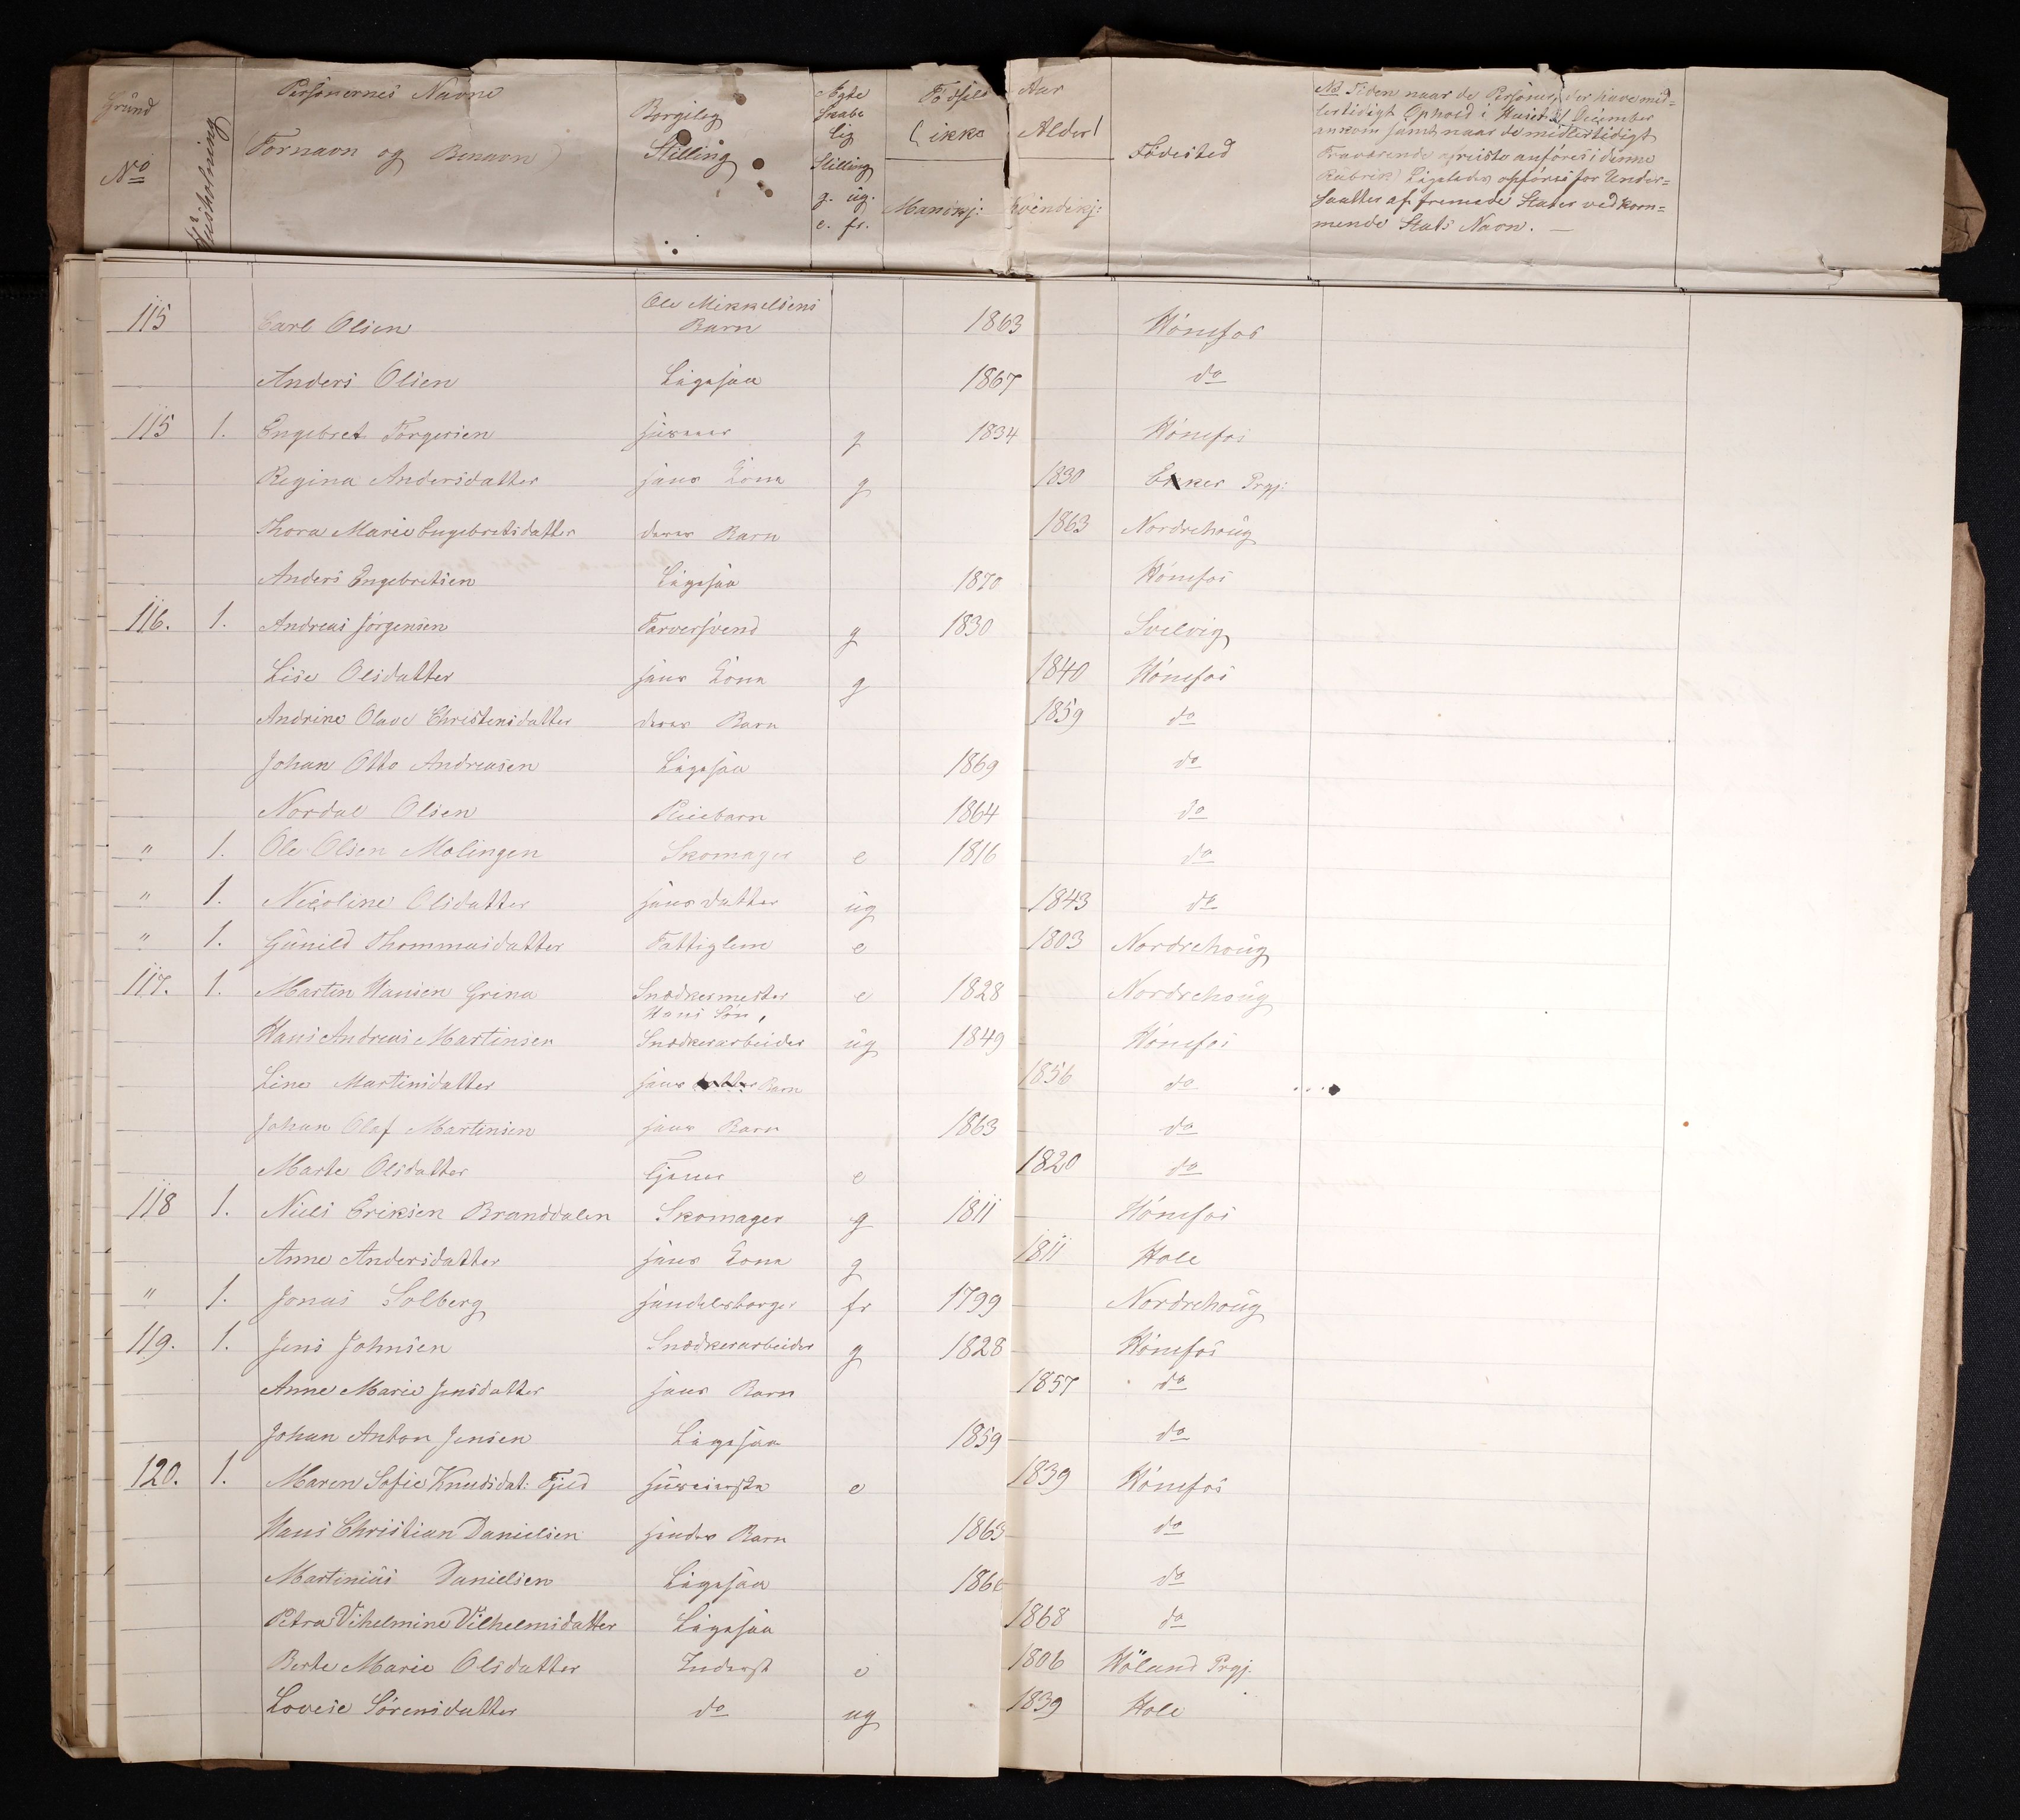 Grund
No
Huusholdning
Personernes Navne
(Fornavn og Benavn)
Borgelig
Stilling
Ægte
skabe
lig
Stilling
g. ug.
e. fr.
Födsels Aar
(ikke Alder)
Mandkj: Kvindekj:
Födested
Nb Tiden naar de Personer, der have mid=
lertidigt Ophold i Huset 31 December
ankom samt naar de midlertidigt
Fraværende afreiste anföres i denne
Rubrik) Ligeledes opföres for Under=
saatter af fremede Stater vedkom=
mende Stats Navn. —
115 Carl Olsen Ole Mikkelsens Barn 1863 Hönefos
Anders Olsen Ligesaa 1867 do
115 1. Engebret Torgersen g 1834 Hönefos
Regina Andersdatter hans Kona g 1830 Eker Prgj:
Thora Marie Engebretsdatter deres Barn 1863 Nordrehoug
Anders Engebretsen Ligesaa 1870 Hönefos
116. 1. Andreas Jörgensen Farversvend g 1830 Svelvig
Lise Olsdatter hans Kona g 1840 Hönefos
Andrine Olave Christensdatter deres Barn 1859 do
Johan Otto Andreasen Ligesaa 1869 do
Nordal Olsen Pleiebarn 1864 do
" 1. Ole Olsen Molingen Skomager e 1816 do
" 1. Nicoline Olsdatter hans datter ug 1843 do
" 1. Gunild Thommasdatter Fattiglem e 1803 Nordrehoug
117. 1. Martin Hansen Grina Snedkermester e 1828 Nordrehoug
Hans Andreas Martinsen Hans Sön, Snedkerarbeider ug 1849 Hönefos
Line Martinsdatter hans Barn 1856 do
Johan Olaf Martinsen hans Barn 1863 do
Marte Olsdatter Tjener e 1820 do
118 1. Niels Eriksen Branddalen Skomager g 1811 Hönefos
Anne Andersdatter hans Kona g 1811 Hole
" 1. Jonas Solberg Handelsborger fr 1799 Nordrehoug
119. 1. Jens Johnsen Snedkerarbeider g 1828 Hönefos
Anne Marie Jensdatter hans Barn 1857 do
Johan Anton Jensen Ligesaa 1859 do
120. 1. Maren Sofie Knudsdat: Fjeld Huseierska e 1839 Hönefos
Hans Christian Danielsen hendes Barn 1863 do
Martinius Danielsen Ligesaa 1866 do
Petra Vihelmine Vilhelmsdatter Ligesaa 1868 do
Berte Marie Olsdatter Inderst e 1806 Höland Prgj.
Lovise Sörensdatter do ug 1839 Hole